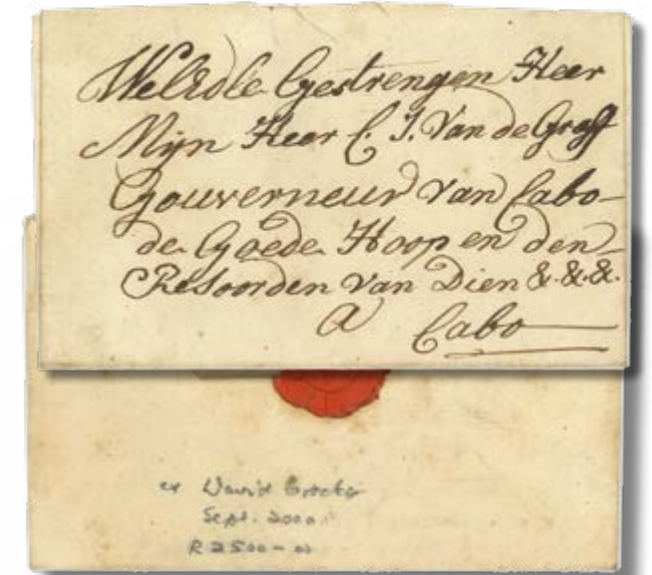 WelEdele Gestrengen Heer
Mijn Heer C. J. Van de Graff
Gouverneur van Cabo
de Goede Hoop en den
Resoorden van Dien &.&.&.
a Cabo
ex David
Sept. 2000
R2500-00